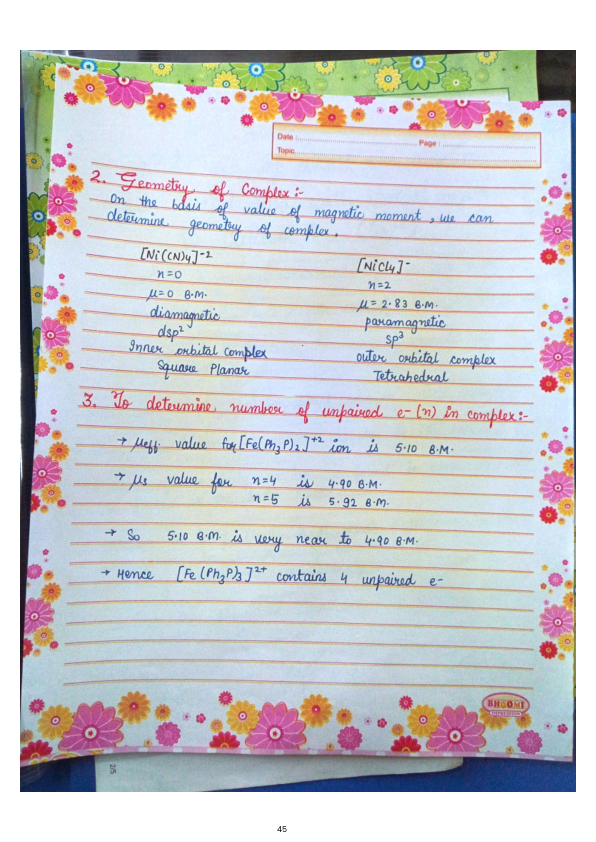 Date :
Page :
Topic
2. Geometry of Complex :-
On the basis of value of magnetic moment, we can
determine geometry of complex.
[Ni(CN)4]-2
n=0
μ=0 B.M.
diamagnetic
dsp2
Inner orbital complex
Square Planar
[NiCl4]-
n=2
μ = 2.83 B.M.
paramagnetic
sp3
outer orbital complex
Tetrahedral
3. To determine number of unpaired e- (n) in complex:-
→ μeff. value for [Fe(Ph3P)2]+2 ion is 5.10 B.M.
→ μs value for n=4 is 4.90 B.M.
n=5 is 5.92 B.M.
→ So 5.10 B.M. is very near to 4.90 B.M.
→ Hence [Fe(Ph3P)3]2+ contains 4 unpaired e-
BHOOMI
2/5
45